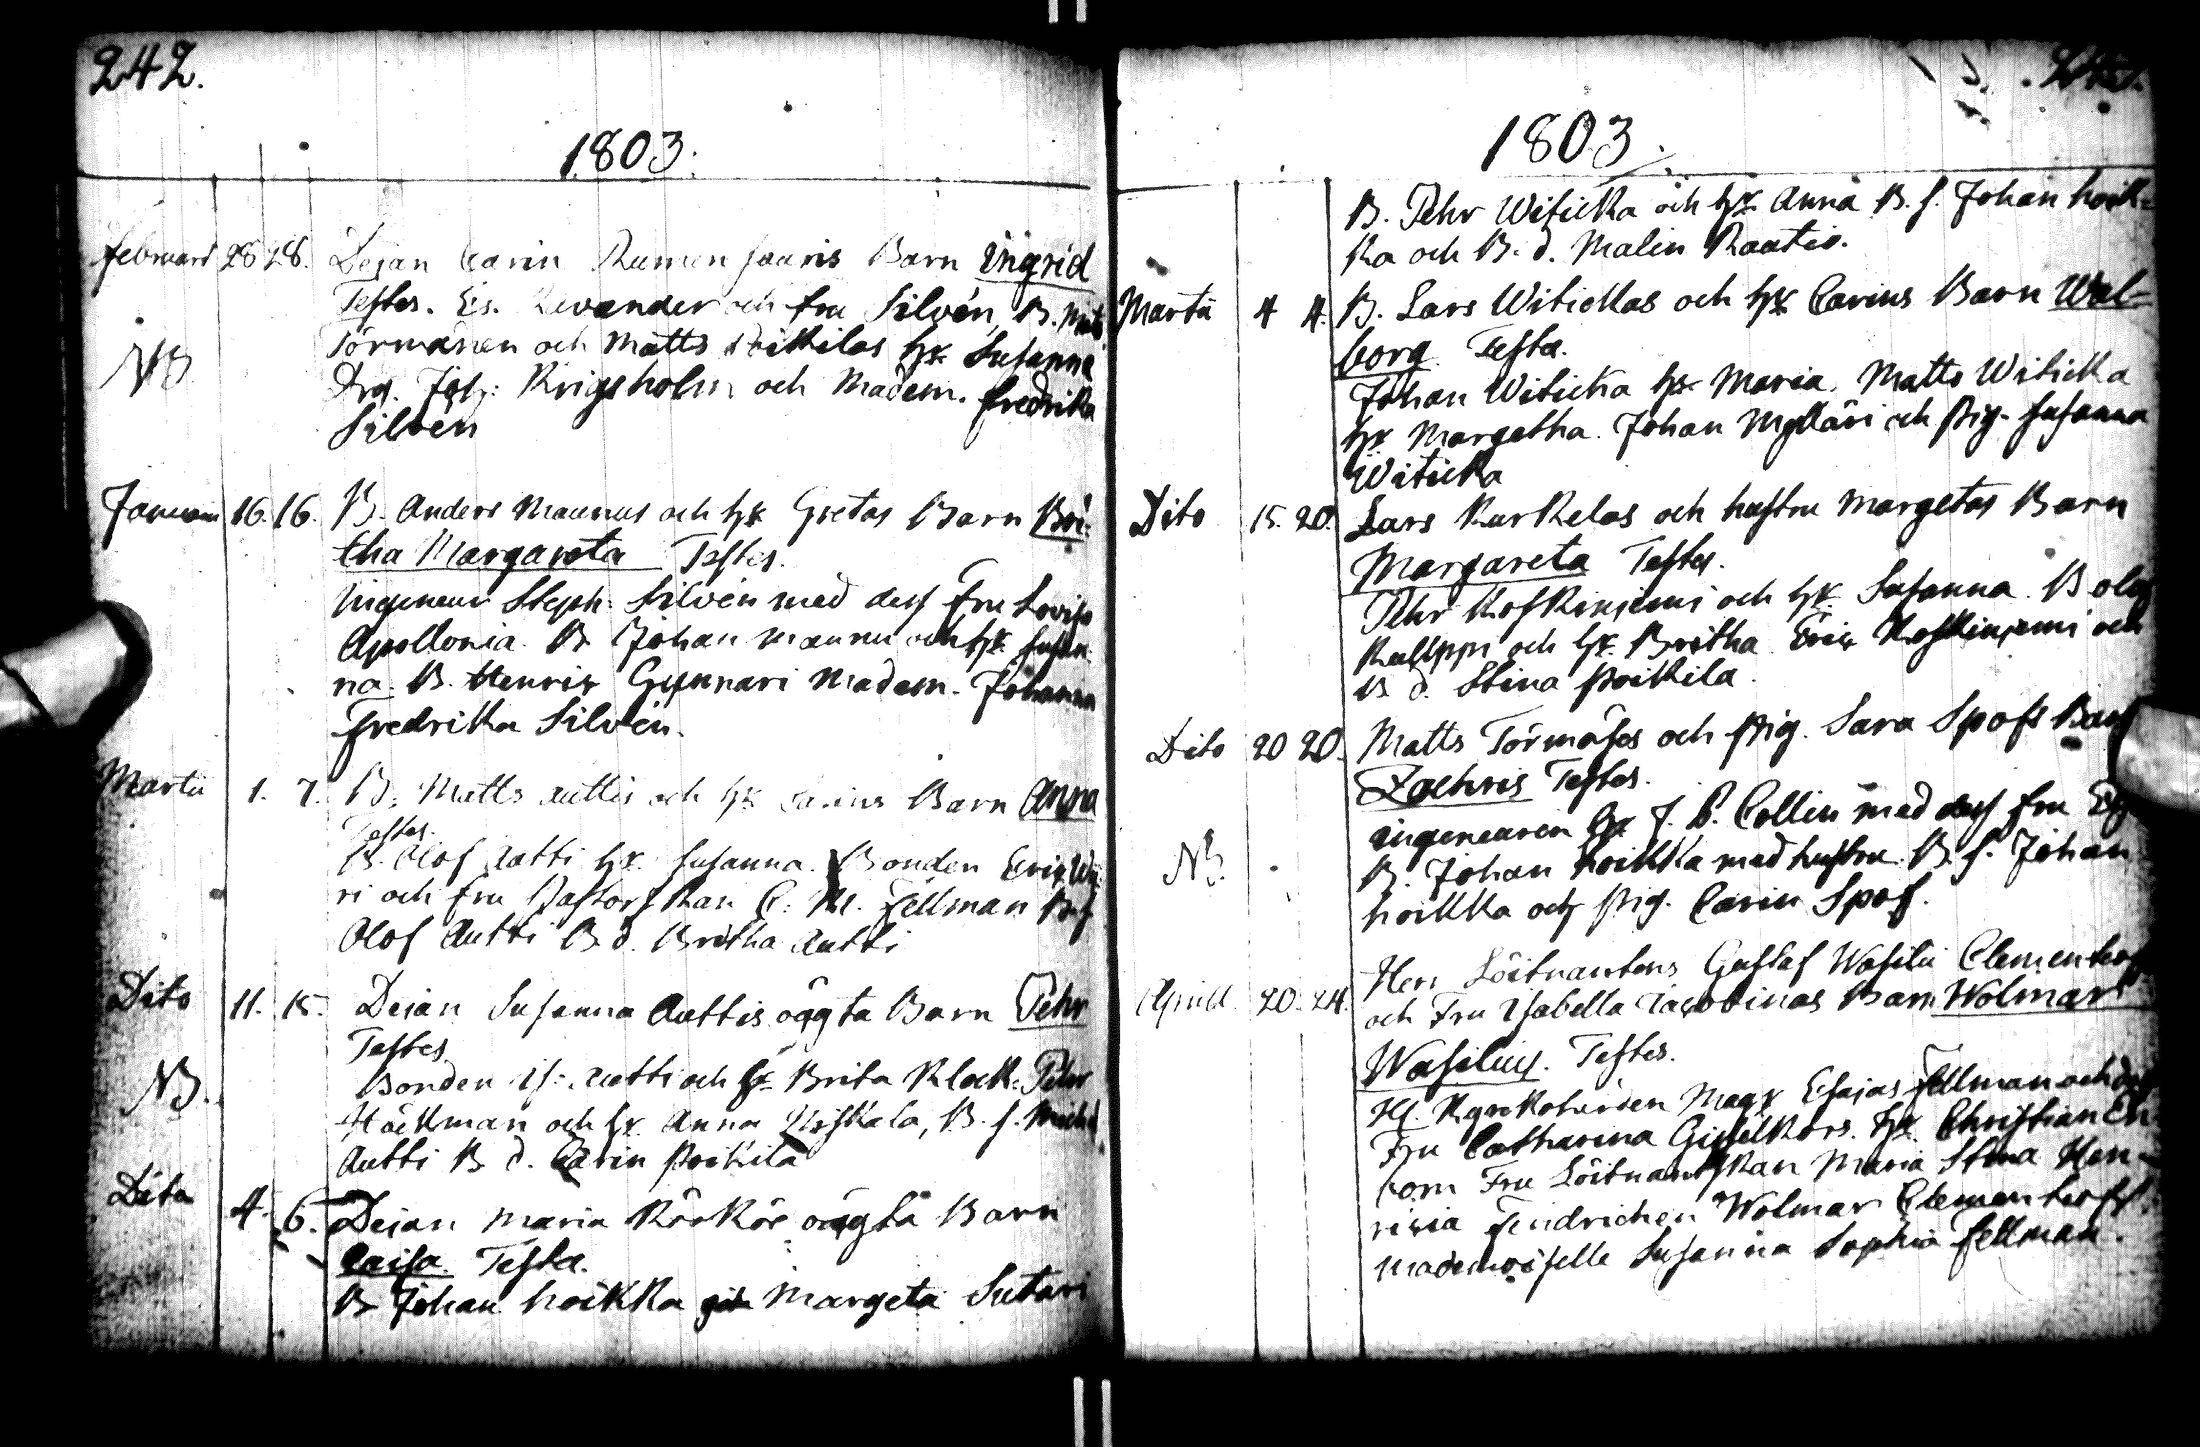 242.
1803.
Februarii 28 28. Dejan Carin Rumen Jaaris Barn Ingrid
Testes. Es. Levander och fru Silvén, B. Mats
NB Törmänen och Matts Poikilas hr Susanna
Drg. Joh: Krigsholm och Madem. Fredrika
Silvén
Januarii 16. 16. B. Anders Maunus och hr Gretas Barn Bri-
tha Margareta Testes.
Ingeneur Steph. Silvén med dess Fru Lovisa
Apollonia. B Johan Maunu och hr Susan-
na. B. Henrix Gunnari Madem. Johanna
Fredrika Silvén.
Martii 1. 7. B. Matts Auttis och hr Carins Barn Anna
Testes.
B. Olof Autti hr Susanna. Bonden Erix
ri och fru Pastorskan C. M. Fellman B. s
Olof Autti B d. Britha Autti
Dito 11. 15. Dejan Susanna Auttis oägta Barn Pehr
Testes
Bonden Is: Autti och hr Brita Klock. Pehr
NB. Häckman och hr Anna Niskala, B. s. Michel
Autti B d. Carin Poikila
Dito 4. 6. Dejan Maria Körkös oägta Barn
Caisa. Testes.
B Johan Hoikka Margeta Sutari
1803.
B. Pehr Witicka och hr Anna B. s. Johan Hoik-
ka och B. d. Malin Raatio.
Martii 4 4. B. Lars Witickas och hr Carins Barn Wal-
borg. Testes.
Johan Witicka hr Maria, Matts Witicka
hr Margetha. Johan Mylläri och Pig. Susanna
Witicka
Dito 15. 20. Lars Karkelas och hustru Margetas Barn
Margareta Testes.
Pehr Koskiniemi och hr Susanna. B Olof
och hr Britha Erix Koskiniemi och
B d. Stina Poikila.
Dito 20 20. Matts Törmäses och Pig. Sara Spofs Barn
Zachris Testes.
Ingeneuren Hr J. P. Collin med dess fru
NB. B. Johan Hoikka med hustru. B. s. Johan
Hoikka och Pig. Carin Spof.
Herr Löitnantens Gustaf Wasilii Clementeoff
Aprill. 20. 24. och Fru Isabella Jacobinas Barn Wolmar
Wasilius. Testes.
H. Kyrkoherden Magr Esajas Fellman och dess
Fru Catharina Gisselkors. hr Christian Ehn-
bom Fru Löitnantskan Maria Stina Hen-
ricia Fendrichen Wolmar Clementeoff
Mademoiselle Susanna Sophia Fellman.